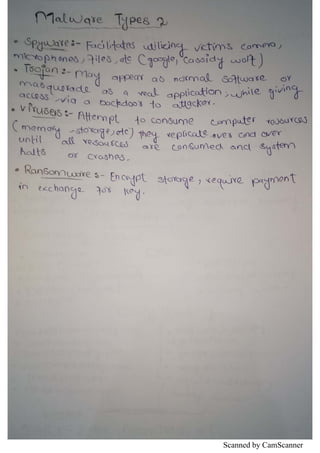 Malware Types 2
• Spyware:- Facilitates utilizing victims camera,
microphones, files, etc (google, Cassidy wolf)
• Trojan:- May appear as normal software or
masquerade as a real application, while giving
access via a backdoors to attacker.
• Virusers:- Attempt to consume computer resources
(memory, storage, etc) they replicate over and over
until all resources are consumed and system
halts or crashes.
• Ransomware:- Encrypt storage, require payment
in exchange for key.
Scanned by CamScanner